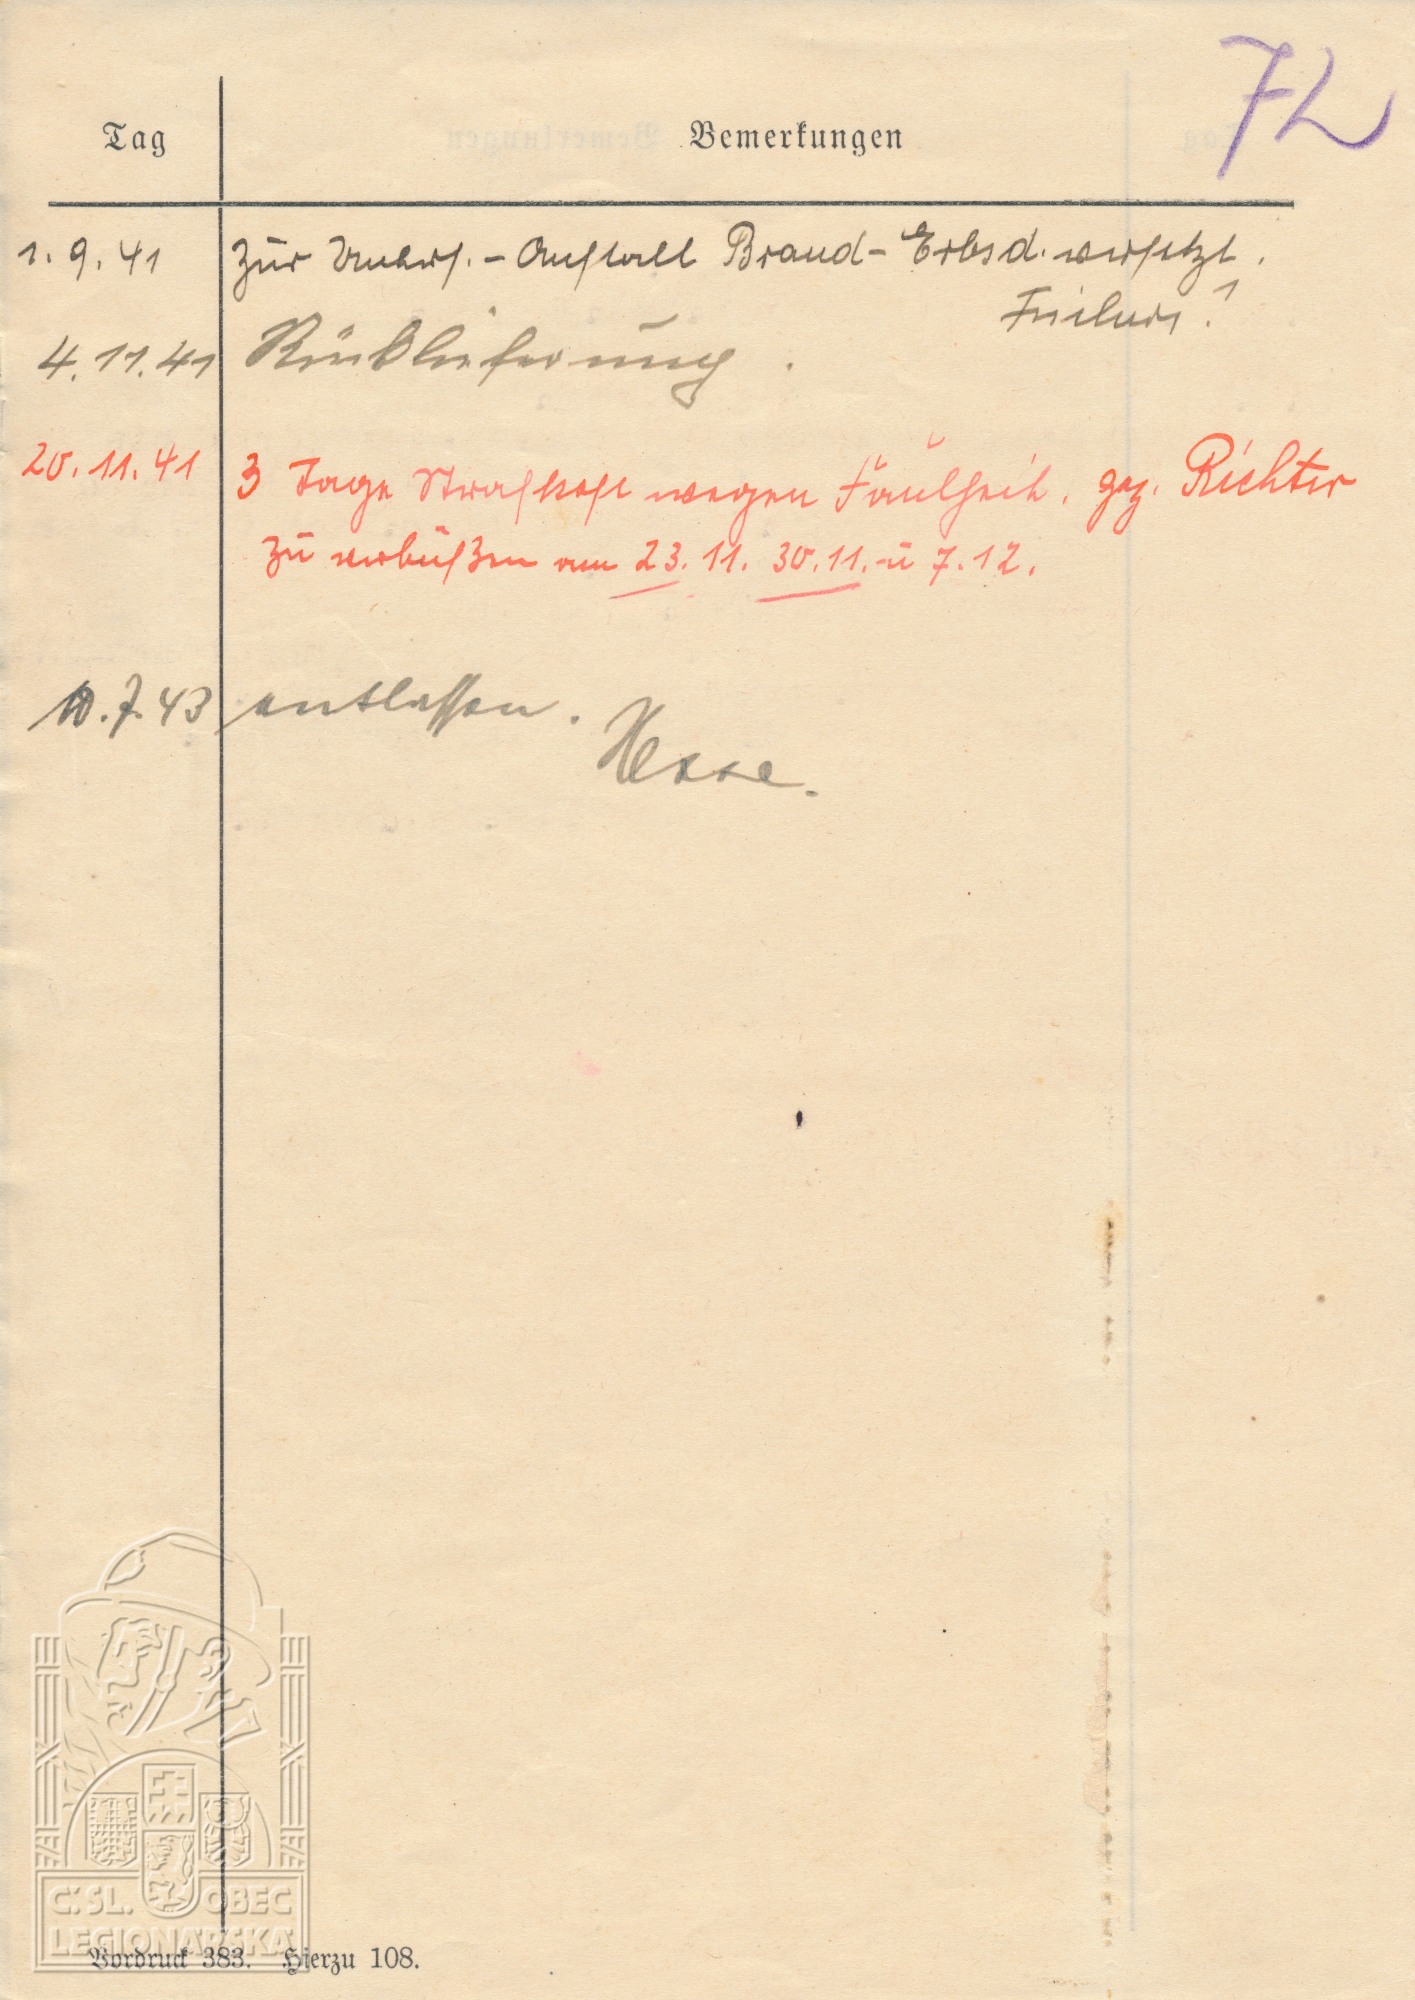 72
Tag Bemerkungen
1.9.41 Zur Unters.-Anstalt Brand-Erbisd. versetzt.
4.11.41 Rücklieferung.
20.11.41 3 Tage Strafkost wegen Faulheit. gez. Richter
zu verbüßen am 23.11. 30.11. u 7.12.
10.7.43 entlassen.
Hesse.
C.SL. OBEC
LEGIONÁRSKÁ
Vordruck 383. Hierzu 108.